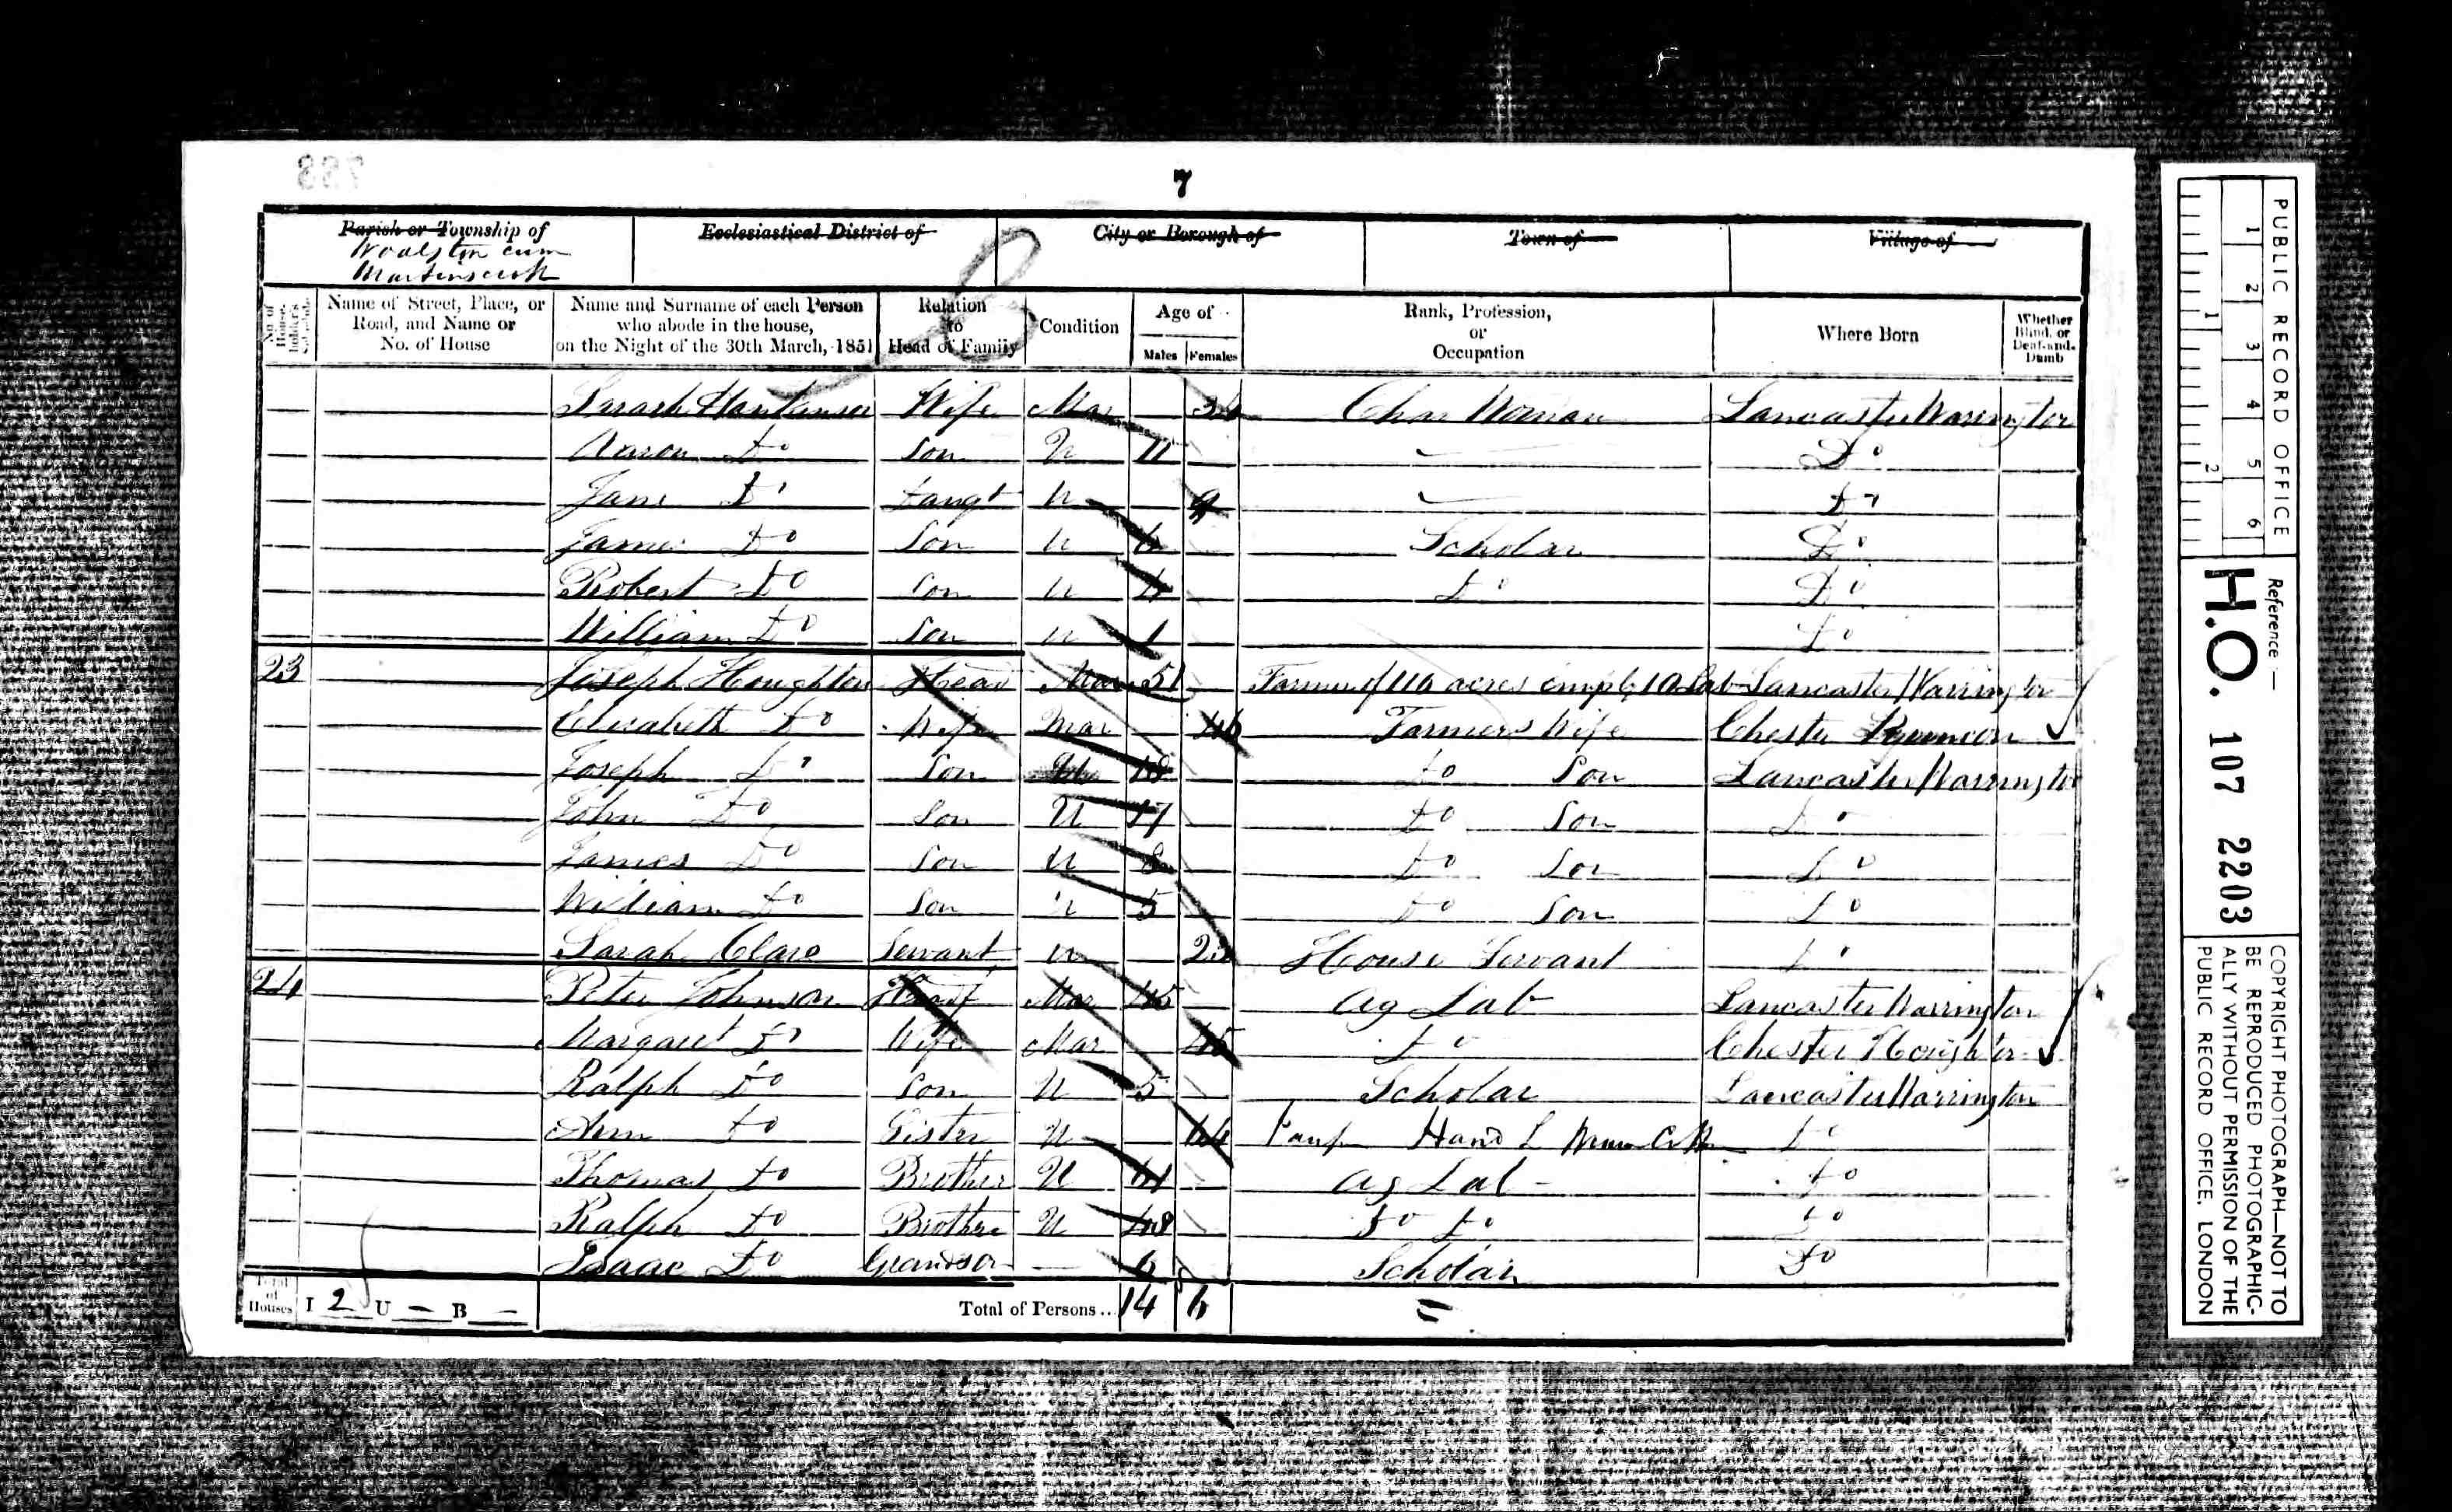 7
Parish or Township of
Woolston cum
Martinscroft
Ecclesiastical District of
City or Borough of
Town of
Village of
No. of House-holder's Schedule
Name of Street, Place, or Road, and Name or No. of House
Name and Surname of each Person who abode in the house, on the Night of the 30th March, 1851
Relation to Head of Family
Condition
Age of
Males
Females
Rank, Profession, or Occupation
Where Born
Whether Blind, or Deaf-and-Dumb
Sarah Wife Mar Char Woman Lancaster Warrington
Aaron Do Son U 11 Do
Jane Do Daugt U 9 Do
James Do Son U 6 Scholar Do
Robert Do Son U 4 Do Do
William Do Son U 1 Do
23 Joseph Houghton Head Mar 51 Farmer of 110 acres Lab Lancaster Warrington
Elizabeth Do Wife Mar 46 Farmers Wife Chester
Joseph Do Son 18 Do Son Lancaster Warrington
John Do Son U 17 Do Son Do
James Do Son U 8 Do Son Do
William Do Son U 5 Do Son Do
Sarah Clare Servant U House Servant Do
24 Peter Johnson Head Mar 45 Ag Lab Lancaster Warrington
Margaret Do Wife Mar 45 Do Chester
Ralph Do Son U 5 Scholar Lancaster Warrington
Ann Do Sister U Hand L Do
Thomas Do Brother U Ag Lab Do
Ralph Do Brother U 48 Do Do Do
Isaac Do Grandson — 6 Scholar Do
Total of Houses I 2 U — B —
Total of Persons.. 14 6
PUBLIC RECORD OFFICE
1 2 3 4 5 6
1 2
Reference:—
H.O. 107 2203
COPYRIGHT PHOTOGRAPH—NOT TO
BE REPRODUCED PHOTOGRAPHIC-
ALLY WITHOUT PERMISSION OF THE
PUBLIC RECORD OFFICE, LONDON